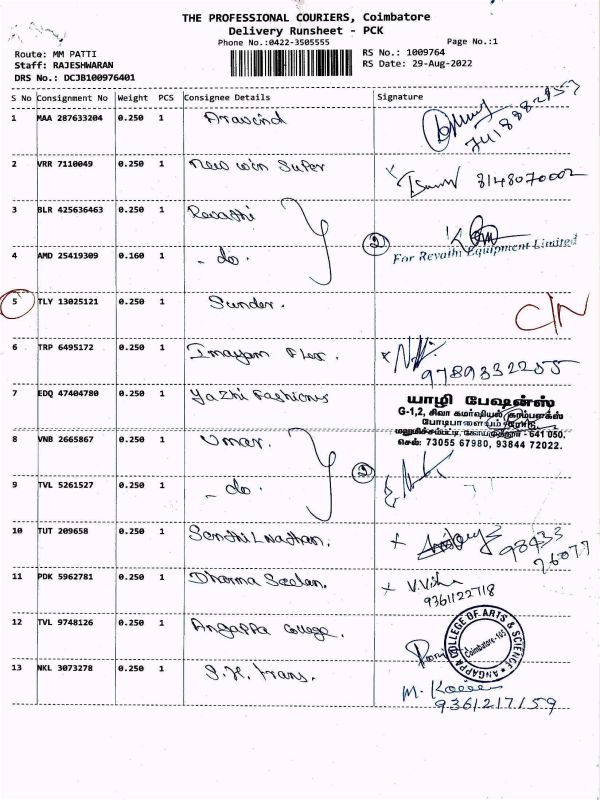 THE PROFESSIONAL COURIERS, Coimbatore
Delivery Runsheet - PCK
Phone No.:0422-3505555 Page No.:1
Route: MM PATTI RS No.: 1009764
Staff: RAJESHWARAN RS Date: 29-Aug-2022
DRS No.: DCJB100976401
S No Consignment No Weight PCS Consignee Details Signature
1 MAA 287633204 0.250 1 Aravind
2 VRR 7110049 0.250 1 New win Super 8148070002
3 BLR 425636463 0.250 1 Revathi
2 For Revathi Equipment Limited
4 AMD 25419309 0.160 1 - do.
5 TLY 13025121 0.250 1 Sunder. C/N
6 TRP 6495172 0.250 1 Imayam Flex. 9789332255
7 EDQ 47404780 0.250 1 Yazhi Fashions
யாழி பேஷன்ஸ்
G-1,2, சிவா கமர்ஷியல் காம்பளக்ஸ்
போடிபாளையம் ரோடு,
மலுமிச்சம்பட்டி, கோயமுத்தூர் - 641 050.
செல்: 73055 67980, 93844 72022.
8 VNB 2665867 0.250 1 Umar.
9 TVL 5261527 0.250 1 - do.
10 TUT 209658 0.250 1 Senthil nathan. 98433
76077
11 PDK 5962781 0.250 1 Dharma Seelan. 9361122718
12 TVL 9748126 0.250 1 Angappa College.
ANGAPPA COLLEGE OF ARTS & SCIENCE
Coimbatore-105
13 NKL 3073278 0.250 1 S.K. Trans.
9361217159